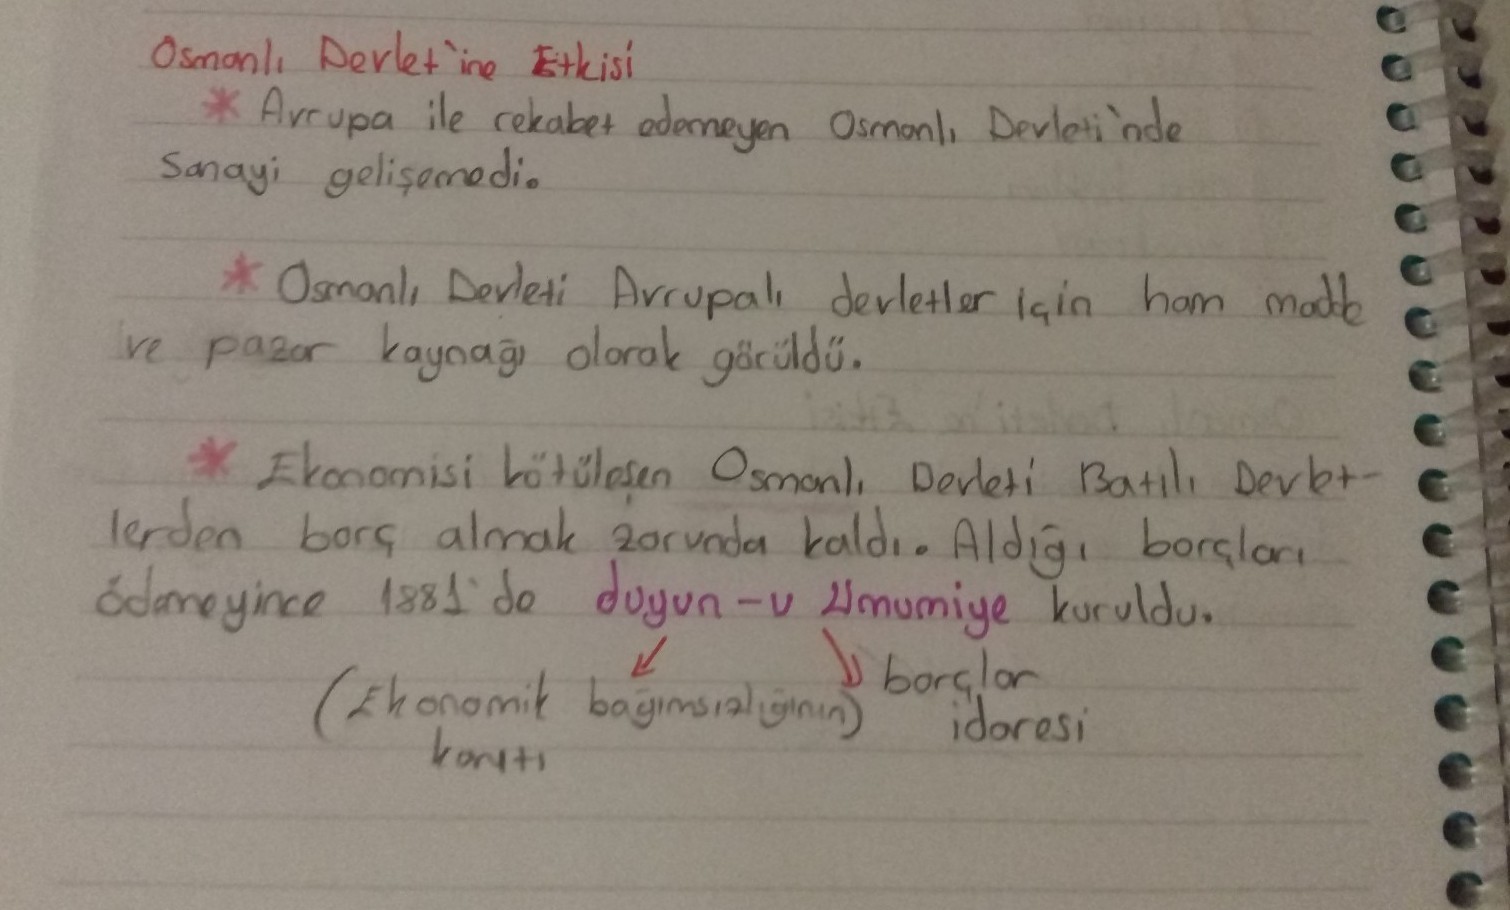 Osmanlı Devlet'ine Etkisi
* Avrupa ile rekabet edemeyen Osmanlı Devleti'nde
Sanayi gelişemedi.
* Osmanlı Devleti Avrupalı devletler için ham madde
ve pazar kaynağı olarak görüldü.
* Ekonomisi kötüleşen Osmanlı Devleti Batılı Devlet-
lerden borç almak zorunda kaldı. Aldığı borçları
ödemeyince 1881'de duyun-u Umumiye kuruldu.
(Ekonomik bağımsızlığının) borçlar
kanıtı idaresi